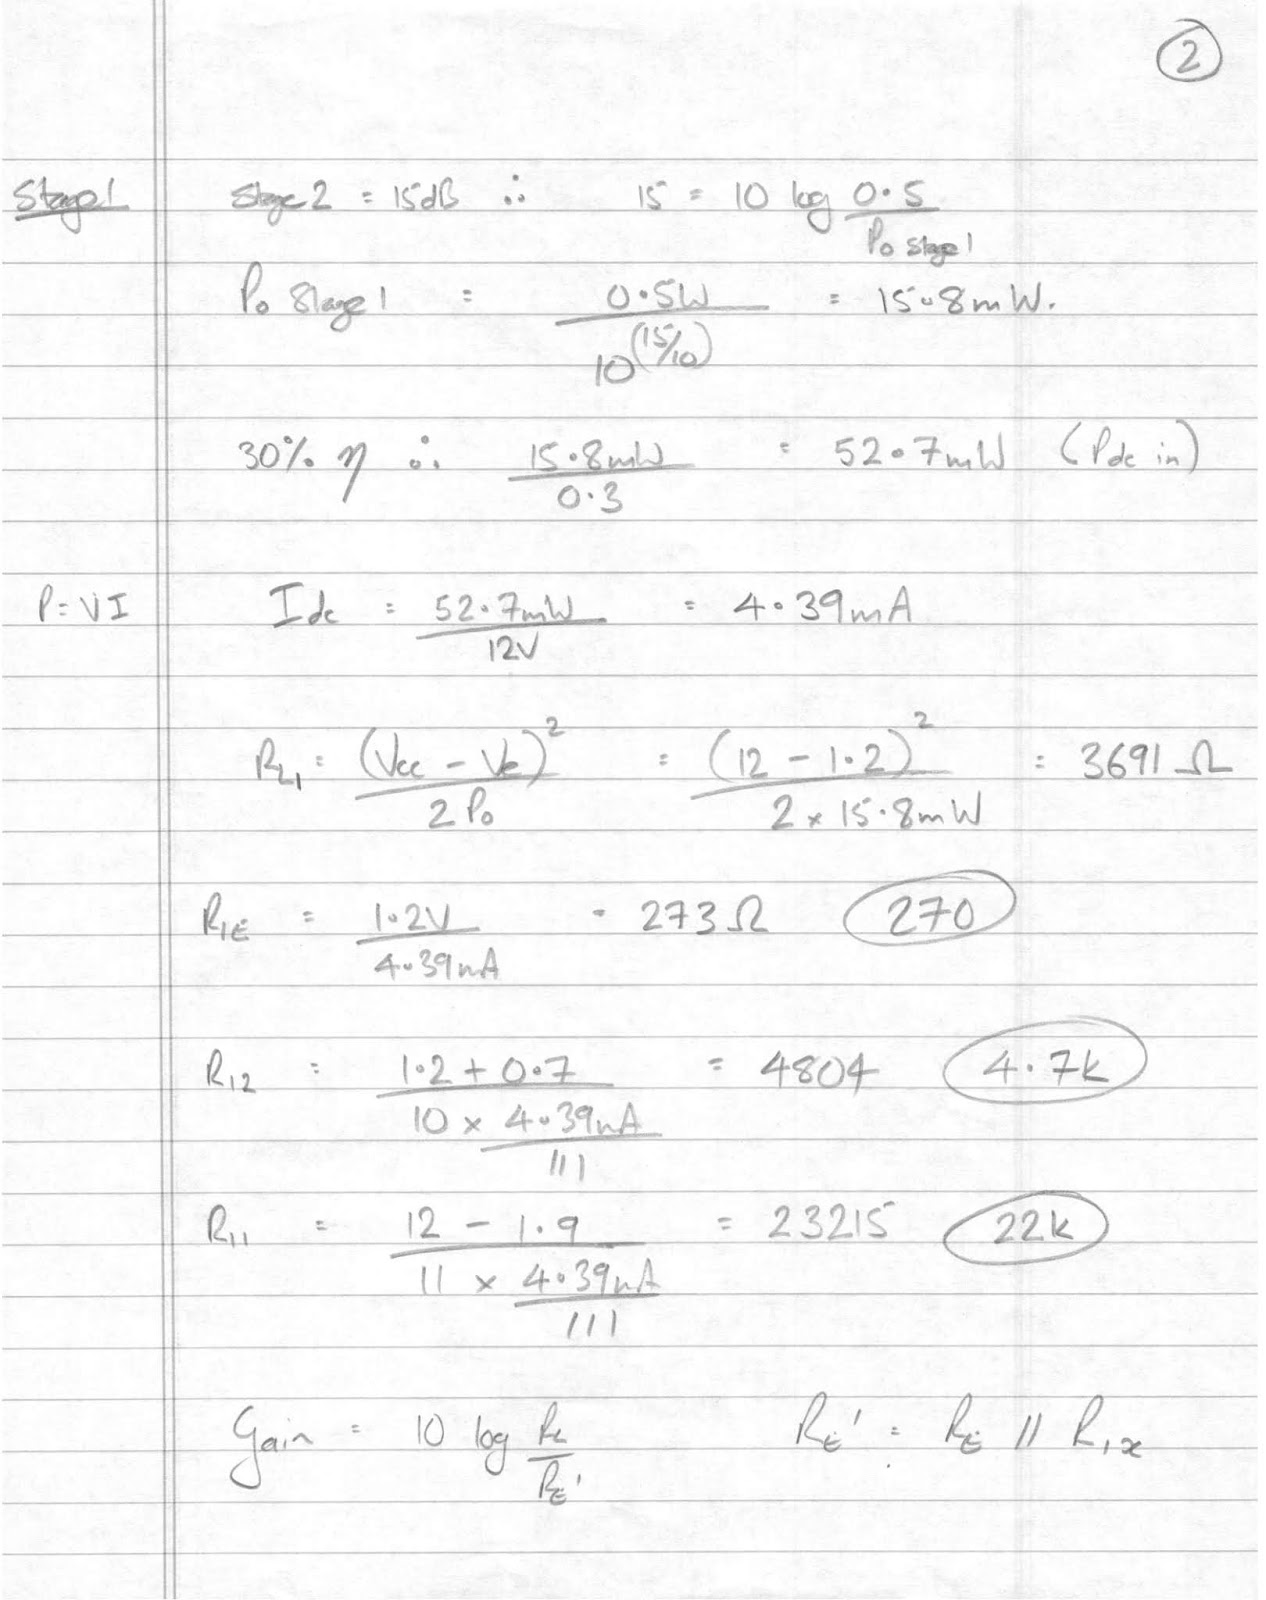 2
Stage 1 Stage 2 = 15dB ∴ 15 = 10 log 0.5 / Po Stage 1
Po Stage 1 = 0.5W / 10^(15/10) = 15.8mW.
30% η ∴ 15.8mW / 0.3 = 52.7mW (Pdc in)
P=VI Idc = 52.7mW / 12V = 4.39mA
RL1 = (Vcc - Ve)^2 / 2Po = (12 - 1.2)^2 / 2 x 15.8mW = 3691 Ω
R1E = 1.2V / 4.39mA = 273Ω 270
R12 = 1.2 + 0.7 / 10 x 4.39mA / 111 = 4804 4.7k
R11 = 12 - 1.9 / 11 x 4.39mA / 111 = 23215 22k
Gain = 10 log RL / RE' RE' = RE // R1x